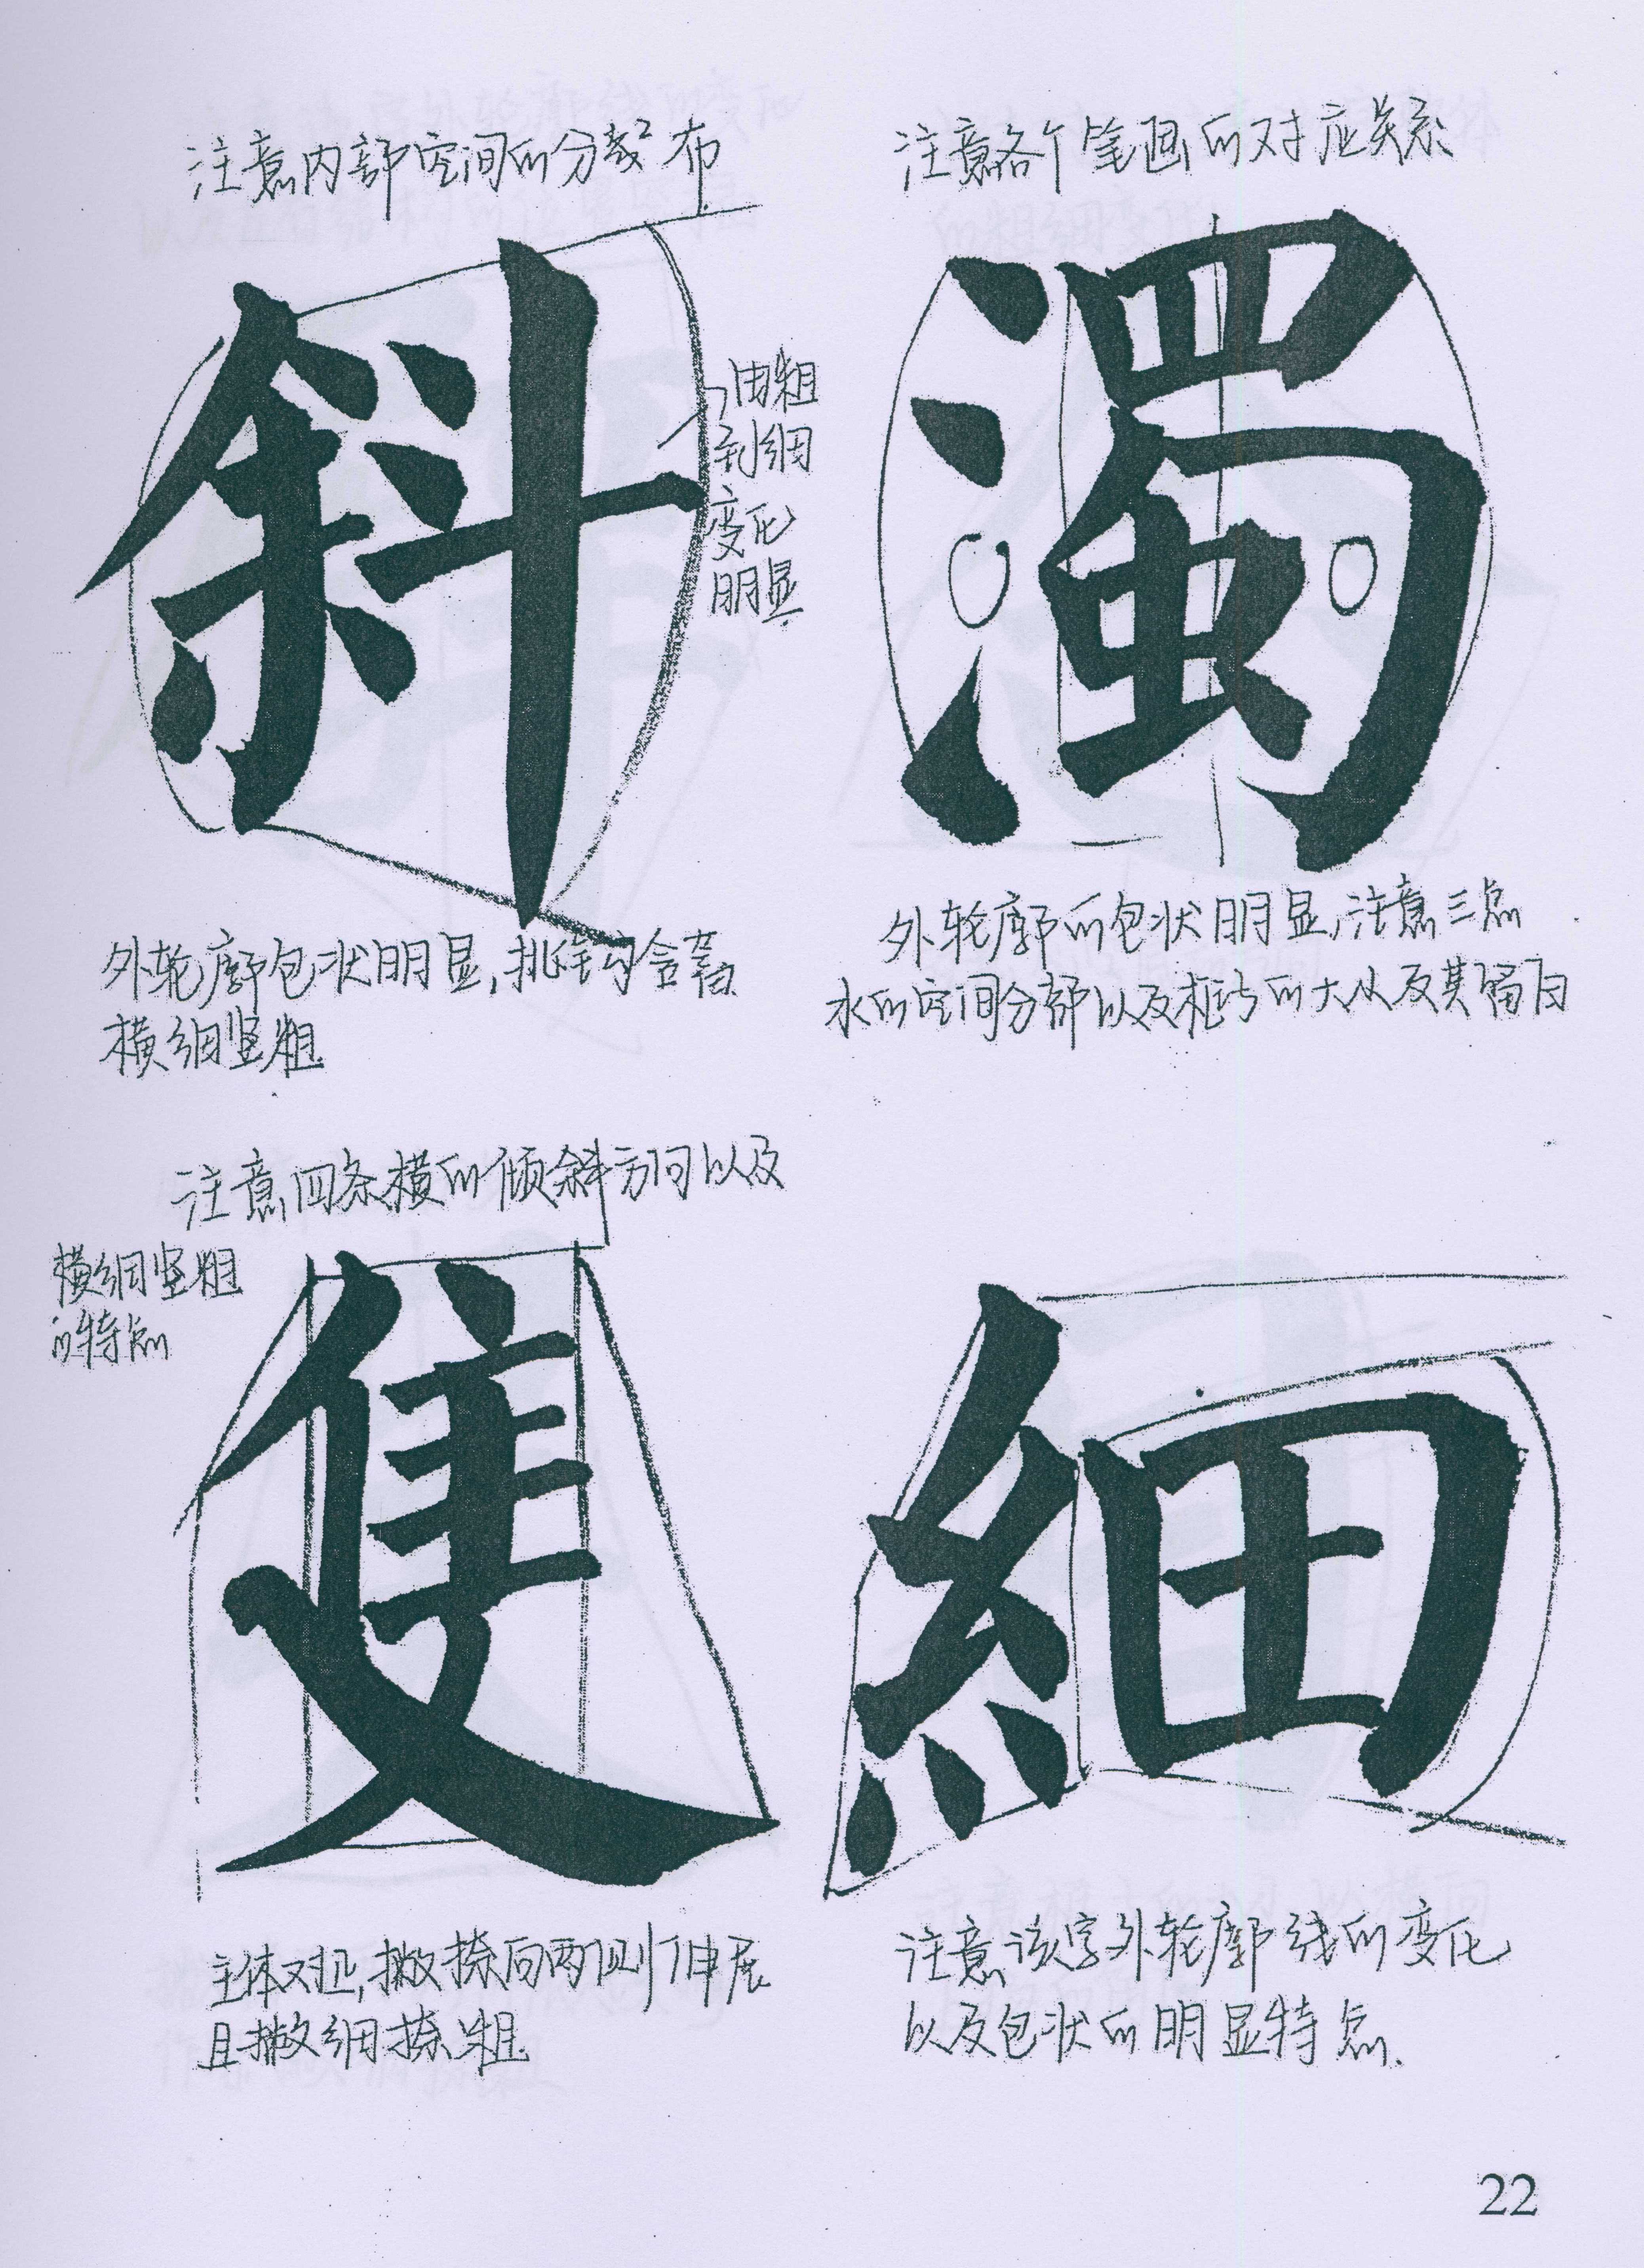 注意内部空间的分布
斜
由粗
到细
变化
明显
外轮廓包状明显,挑钩含蓄
横细竖粗
注意各个笔画的对应关系
濁
外轮廓的包状明显,注意三点
水的空间分部以及框的大以及其留白
注意四条横的倾斜方向以及
横细竖粗
的特点
隻
主体对正,撇捺向两侧伸展
且撇细捺粗
細
注意该字外轮廓线的变化
以及包状的明显特点.
22